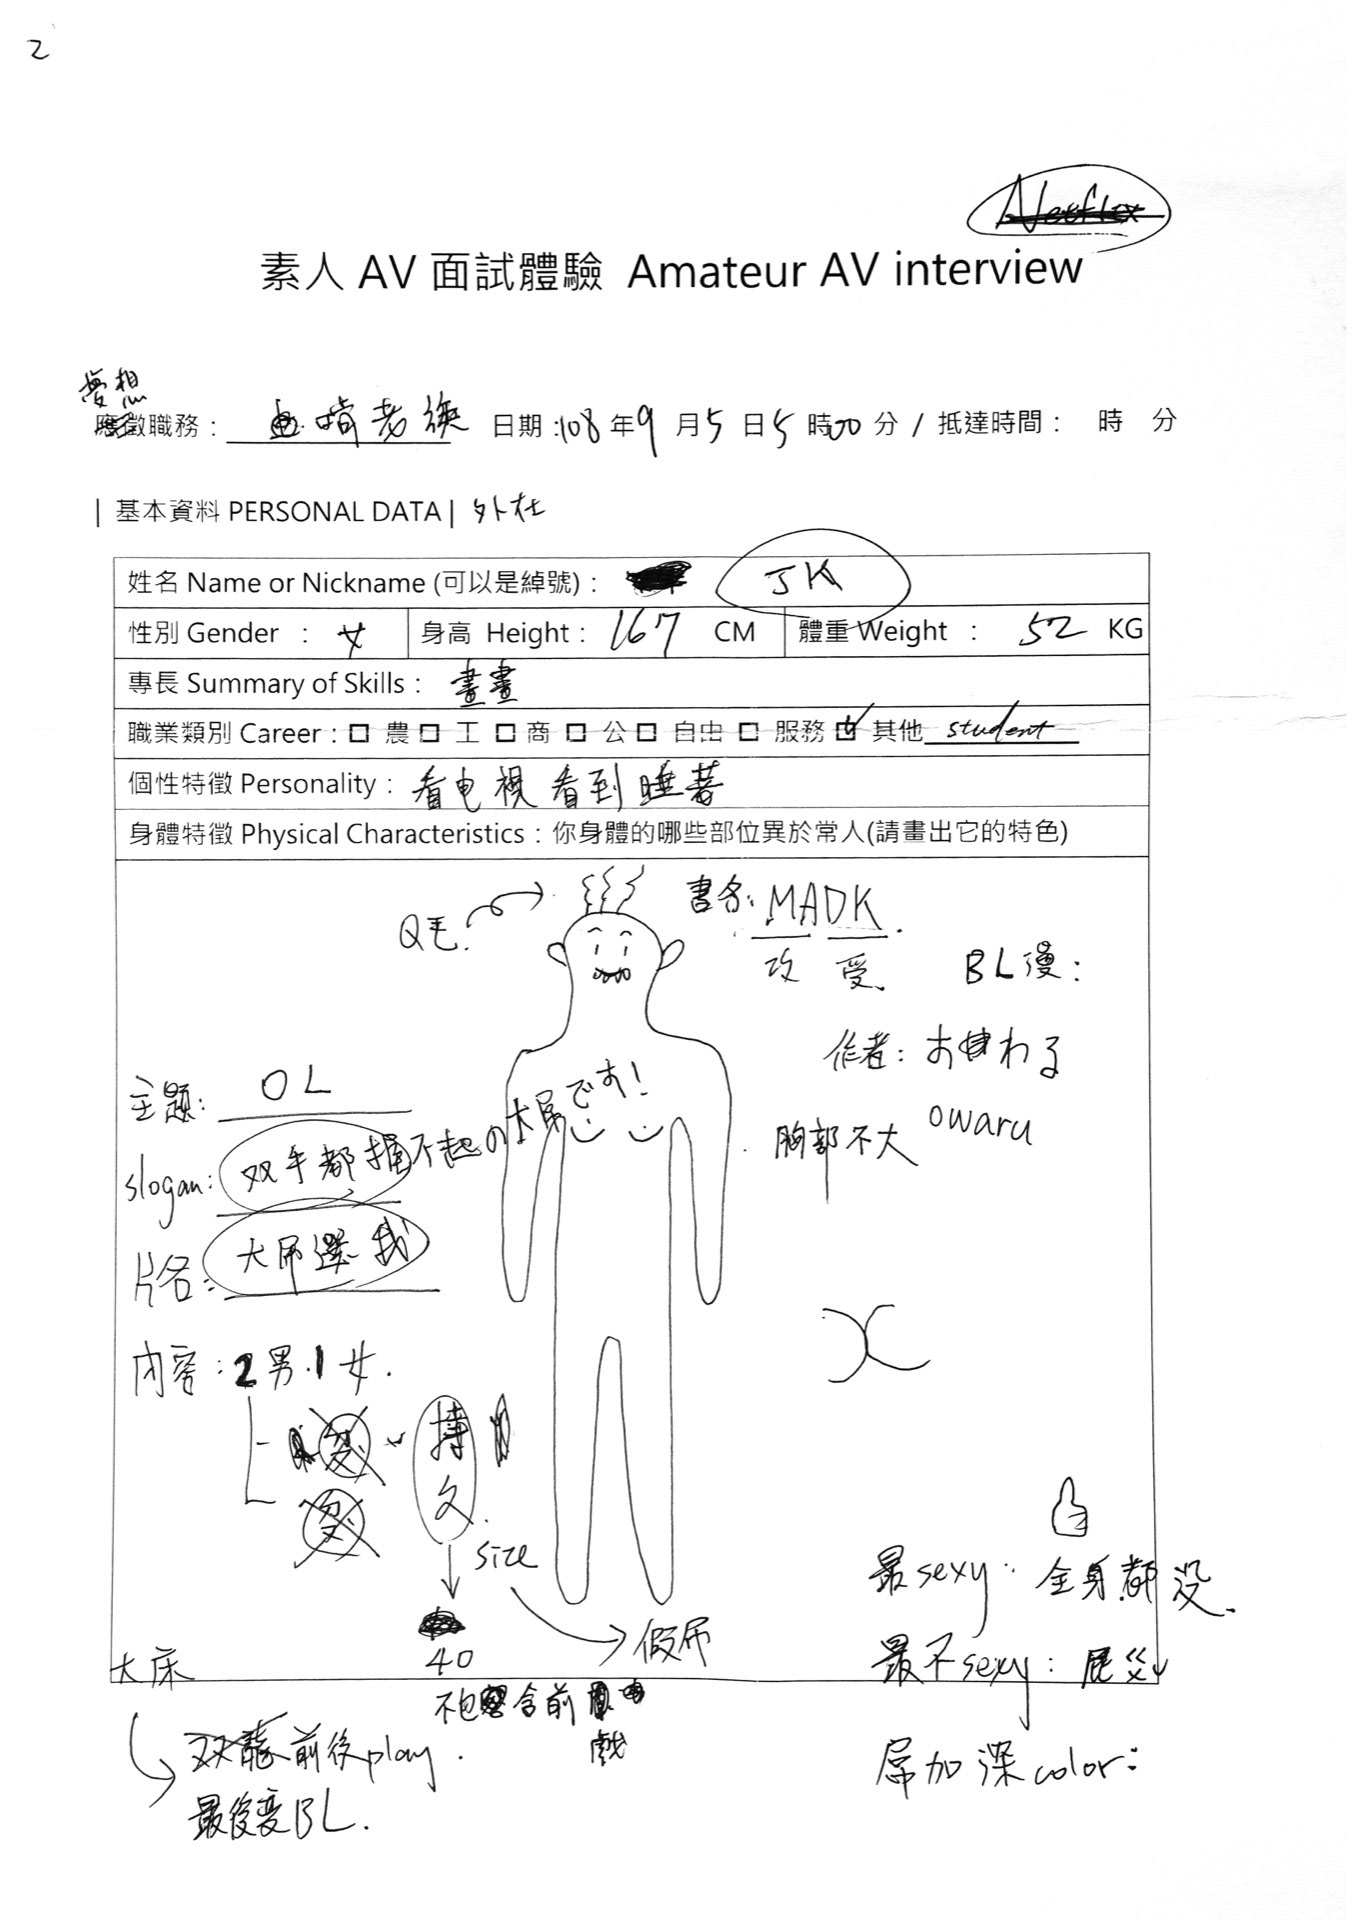 2
素人 AV 面試體驗 Amateur AV interview
夢想
應徵職務：老師 日期：108 年 9 月 5 日 5 時 00 分 / 抵達時間： 時 分
| 基本資料 PERSONAL DATA | 外在
姓名 Name or Nickname (可以是綽號)： JK
性別 Gender ： 女 身高 Height： 167 CM 體重 Weight ： 52 KG
專長 Summary of Skills： 畫畫
職業類別 Career：□ 農 □ 工 □ 商 □ 公 □ 自由 □ 服務 ☑ 其他 student
個性特徵 Personality： 看电視看到睡著
身體特徵 Physical Characteristics：你身體的哪些部位異於常人(請畫出它的特色)
Q毛.
書名: MADK.
攻 受.
BL漫：
作者: わる
owaru
胸部不大
主题: OL
slogan: 双手都握不起の大屌です!
片名: 大屌選我
內容: 2男.1女.
博文.
size
40
假屌
不包含前戲
大床
双龍前後play.
最後变BL.
最sexy: 全身都没.
最不sexy: 屁
屌加深color: